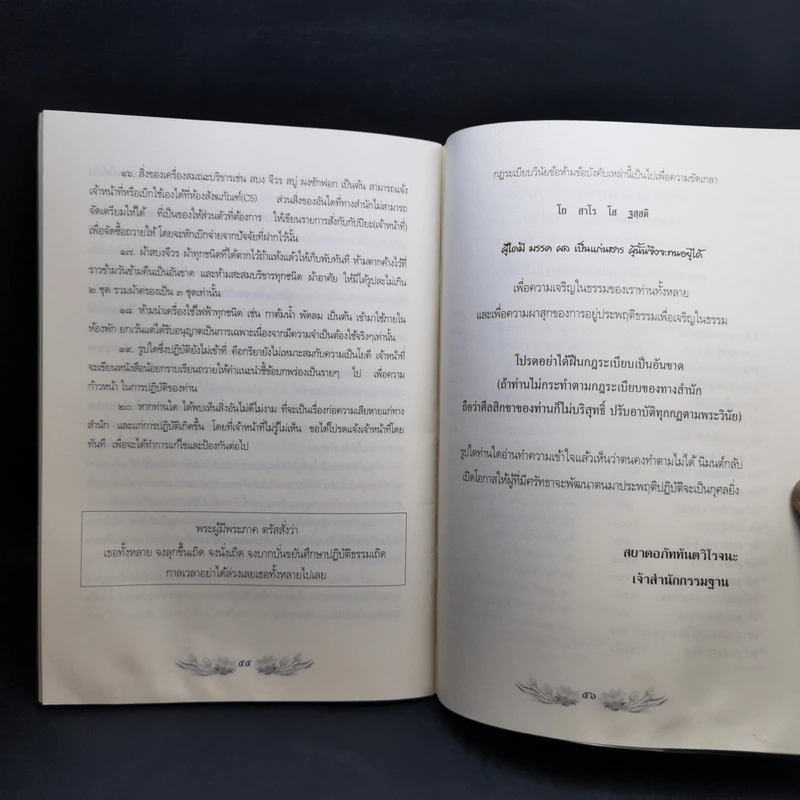 ๑๖. สิ่งของเครื่องสมณะบริขารเช่น สบง จีวร สบู่ ผงซักฟอก เป็นต้น สามารถแจ้ง
เจ้าหน้าที่หรือเบิกใช้เองได้ที่ห้องสังฆภัณฑ์(C5) ส่วนสิ่งของอันใดที่ทางสำนักไม่สามารถ
จัดเตรียมให้ได้ ที่เป็นของใช้ส่วนตัวที่ต้องการ ให้เขียนรายการส่งกับกัปปิยะ(เจ้าหน้าที่)
เพื่อจัดซื้อถวายให้ โดยจะหักเบิกจ่ายจากปัจจัยที่ฝากไว้นั้น
๑๗. ผ้าสบงจีวร ผ้าทุกชนิดที่ได้ตากไว้ถ้าแห้งแล้วให้เก็บพับทันที ห้ามตากค้างไว้ที่
ราวข้ามวันข้ามคืนเป็นอันขาด และห้ามสะสมบริขารทุกชนิด ผ้าอาศัย ให้มีได้รูปละไม่เกิน
๒ ชุด รวมผ้าครองเป็น ๓ ชุดเท่านั้น
๑๘. ห้ามนำเครื่องใช้ไฟฟ้าทุกชนิด เช่น กาต้มน้ำ พัดลม เป็นต้น เข้ามาใช้ภายใน
ห้องพัก ยกเว้นแต่ได้รับอนุญาตเป็นการเฉพาะเนื่องจากมีความจำเป็นต้องใช้จริงๆเท่านั้น
๑๙. รูปใดซึ่งปฏิบัติยังไม่เข้าที่ คือกริยายังไม่เหมาะสมกับความเป็นโยคี เจ้าหน้าที่
จะเขียนหนังสือน้อยกราบเรียนถวายให้คำแนะนำชี้ข้อบกพร่องเป็นรายๆ ไป เพื่อความ
ก้าวหน้า ในการปฏิบัติของท่าน
๒๐. หากท่านใด ได้พบเห็นสิ่งอันไม่ดีไม่งาม ที่จะเป็นเรื่องก่อความเสียหายแก่ทาง
สำนัก และแก่การปฏิบัติเกิดขึ้น โดยที่เจ้าหน้าที่ไม่รู้ไม่เห็น ขอได้โปรดแจ้งเจ้าหน้าที่โดย
ทันที เพื่อจะได้ทำการแก้ไขและป้องกันต่อไป
พระผู้มีพระภาค ตรัสสั่งว่า
เธอทั้งหลาย จงลุกขึ้นเถิด จงนั่งเถิด จงบากบั่นขยันศึกษาปฏิบัติธรรมเถิด
กาลเวลาอย่าได้ล่วงเลยเธอทั้งหลายไปเลย
๕๕
กฎระเบียบวินัยข้อห้ามข้อบังคับเหล่านี้เป็นไปเพื่อความขัดเกลา
โย สาโร โส ฐสฺสติ
ผู้ใดมี มรรค ผล เป็นแก่นสาร ผู้นั้นจึงจะทนอยู่ได้
เพื่อความเจริญในธรรมของเราท่านทั้งหลาย
และเพื่อความผาสุกของการอยู่ประพฤติธรรมเพื่อเจริญในธรรม
โปรดอย่าได้ฝืนกฎระเบียบเป็นอันขาด
(ถ้าท่านไม่กระทำตามกฎระเบียบของทางสำนัก
ถือว่าศีลสิกขาของท่านก็ไม่บริสุทธิ์ ปรับอาบัติทุกกฏตามพระวินัย)
รูปใดท่านใดอ่านทำความเข้าใจแล้วเห็นว่าตนคงทำตามไม่ได้ นิมนต์กลับ
เปิดโอกาสให้ผู้ที่มีศรัทธาจะพัฒนาตนมาประพฤติปฏิบัติจะเป็นกุศลยิ่ง
สยาดอภัททันตวิโรจนะ
เจ้าสำนักกรรมฐาน
๕๖